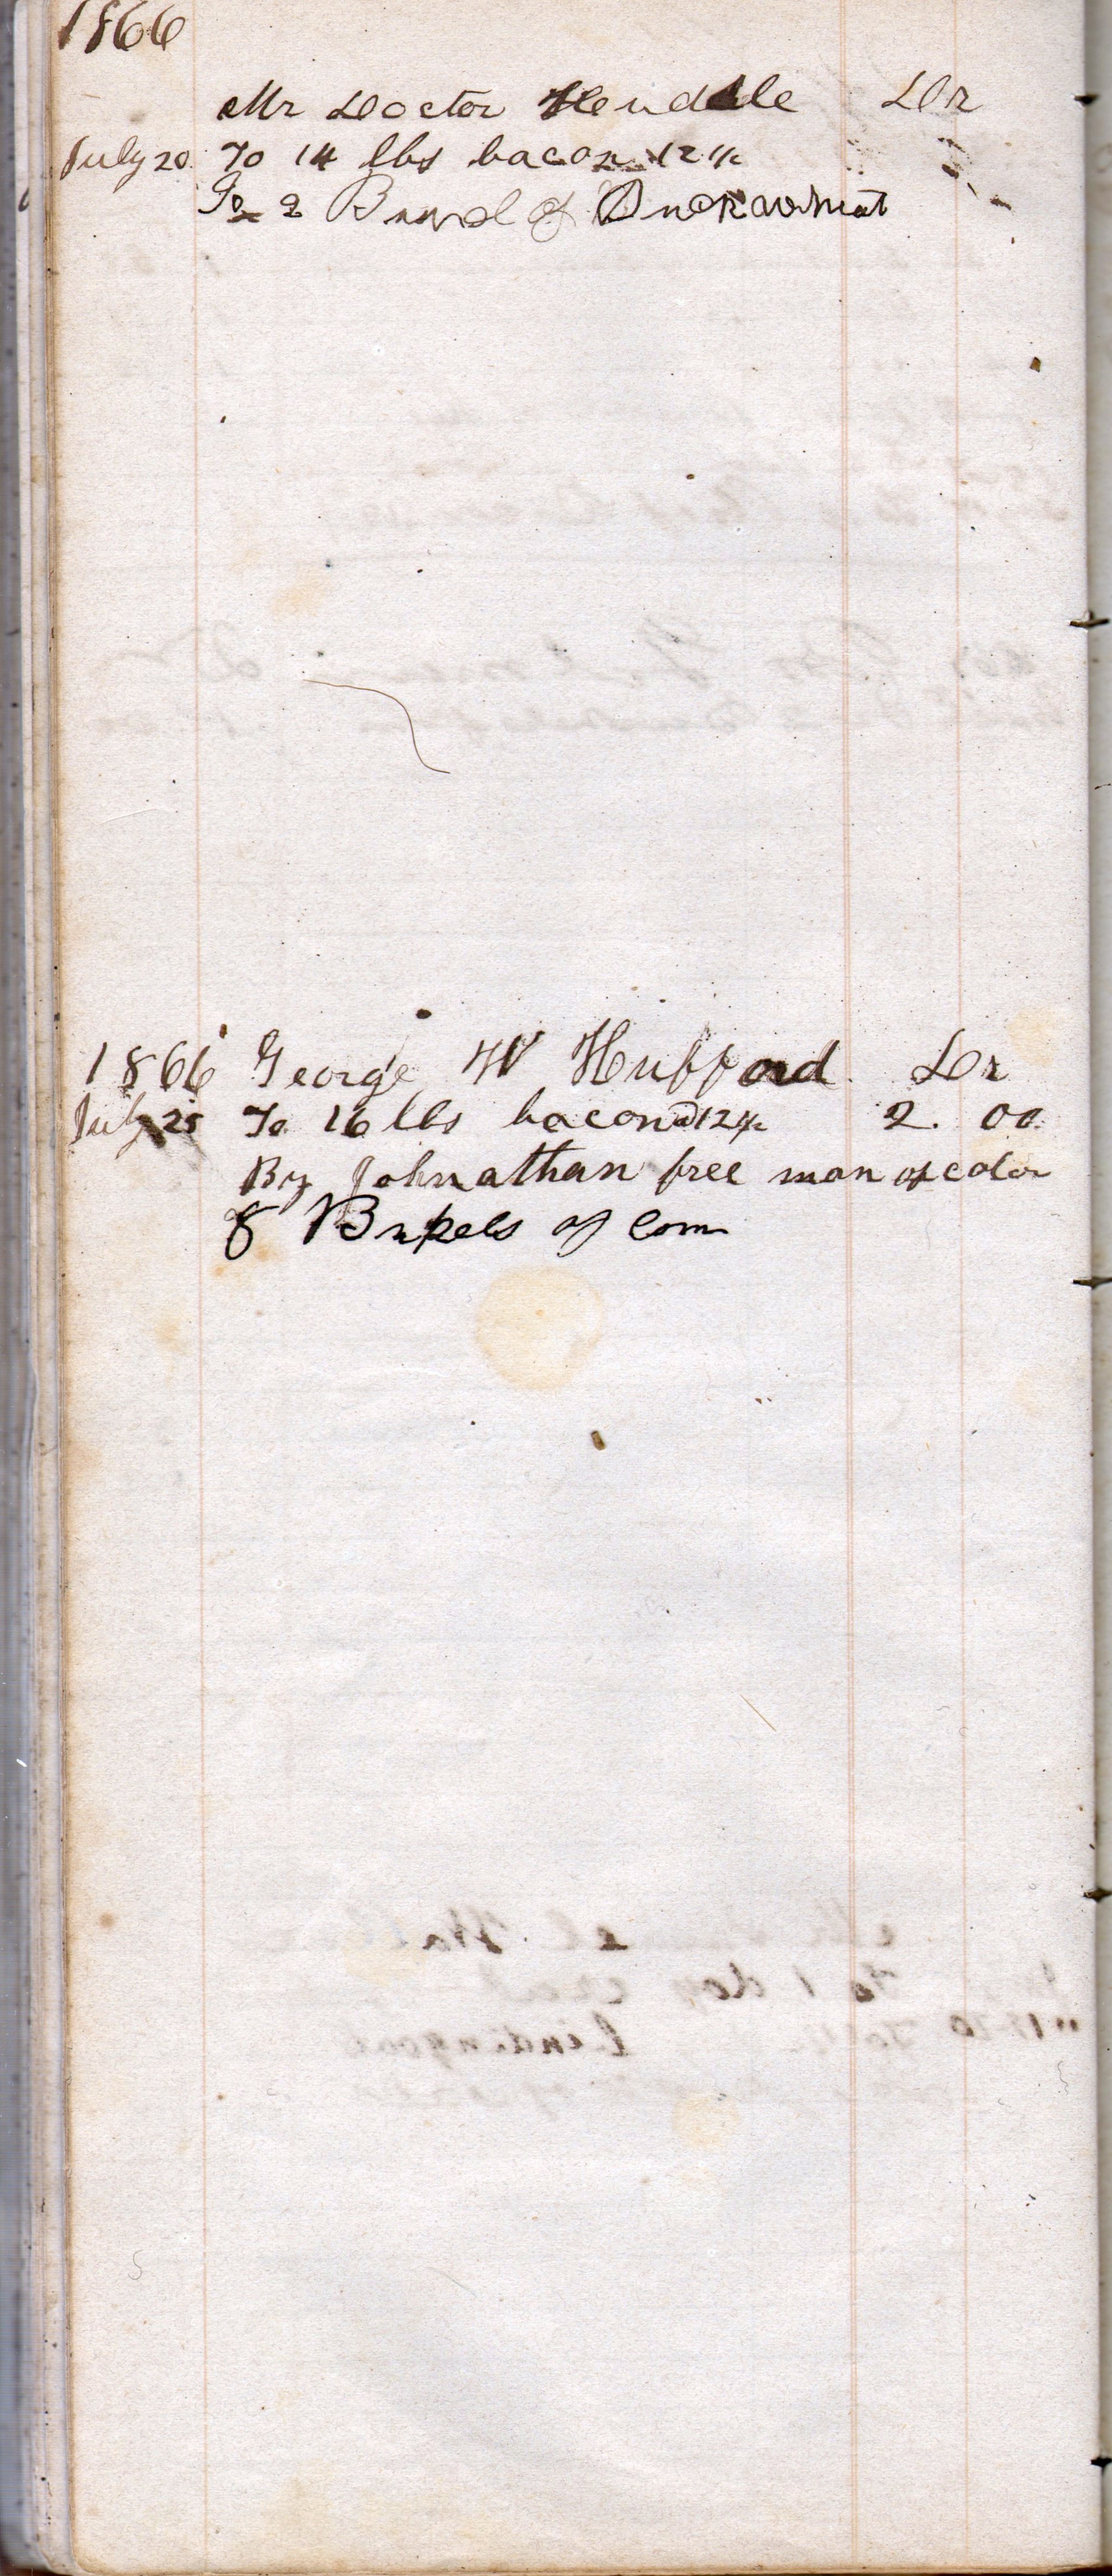 1866
Mr Doctor Dr
July 20 To 14 lbs bacon 12½
To 2 of Buckwheat
1866 George W Hufford Dr
July 25 To 16 lbs bacon @ 12½ 2. 00
By Johnathan free man of color
8 of Corn